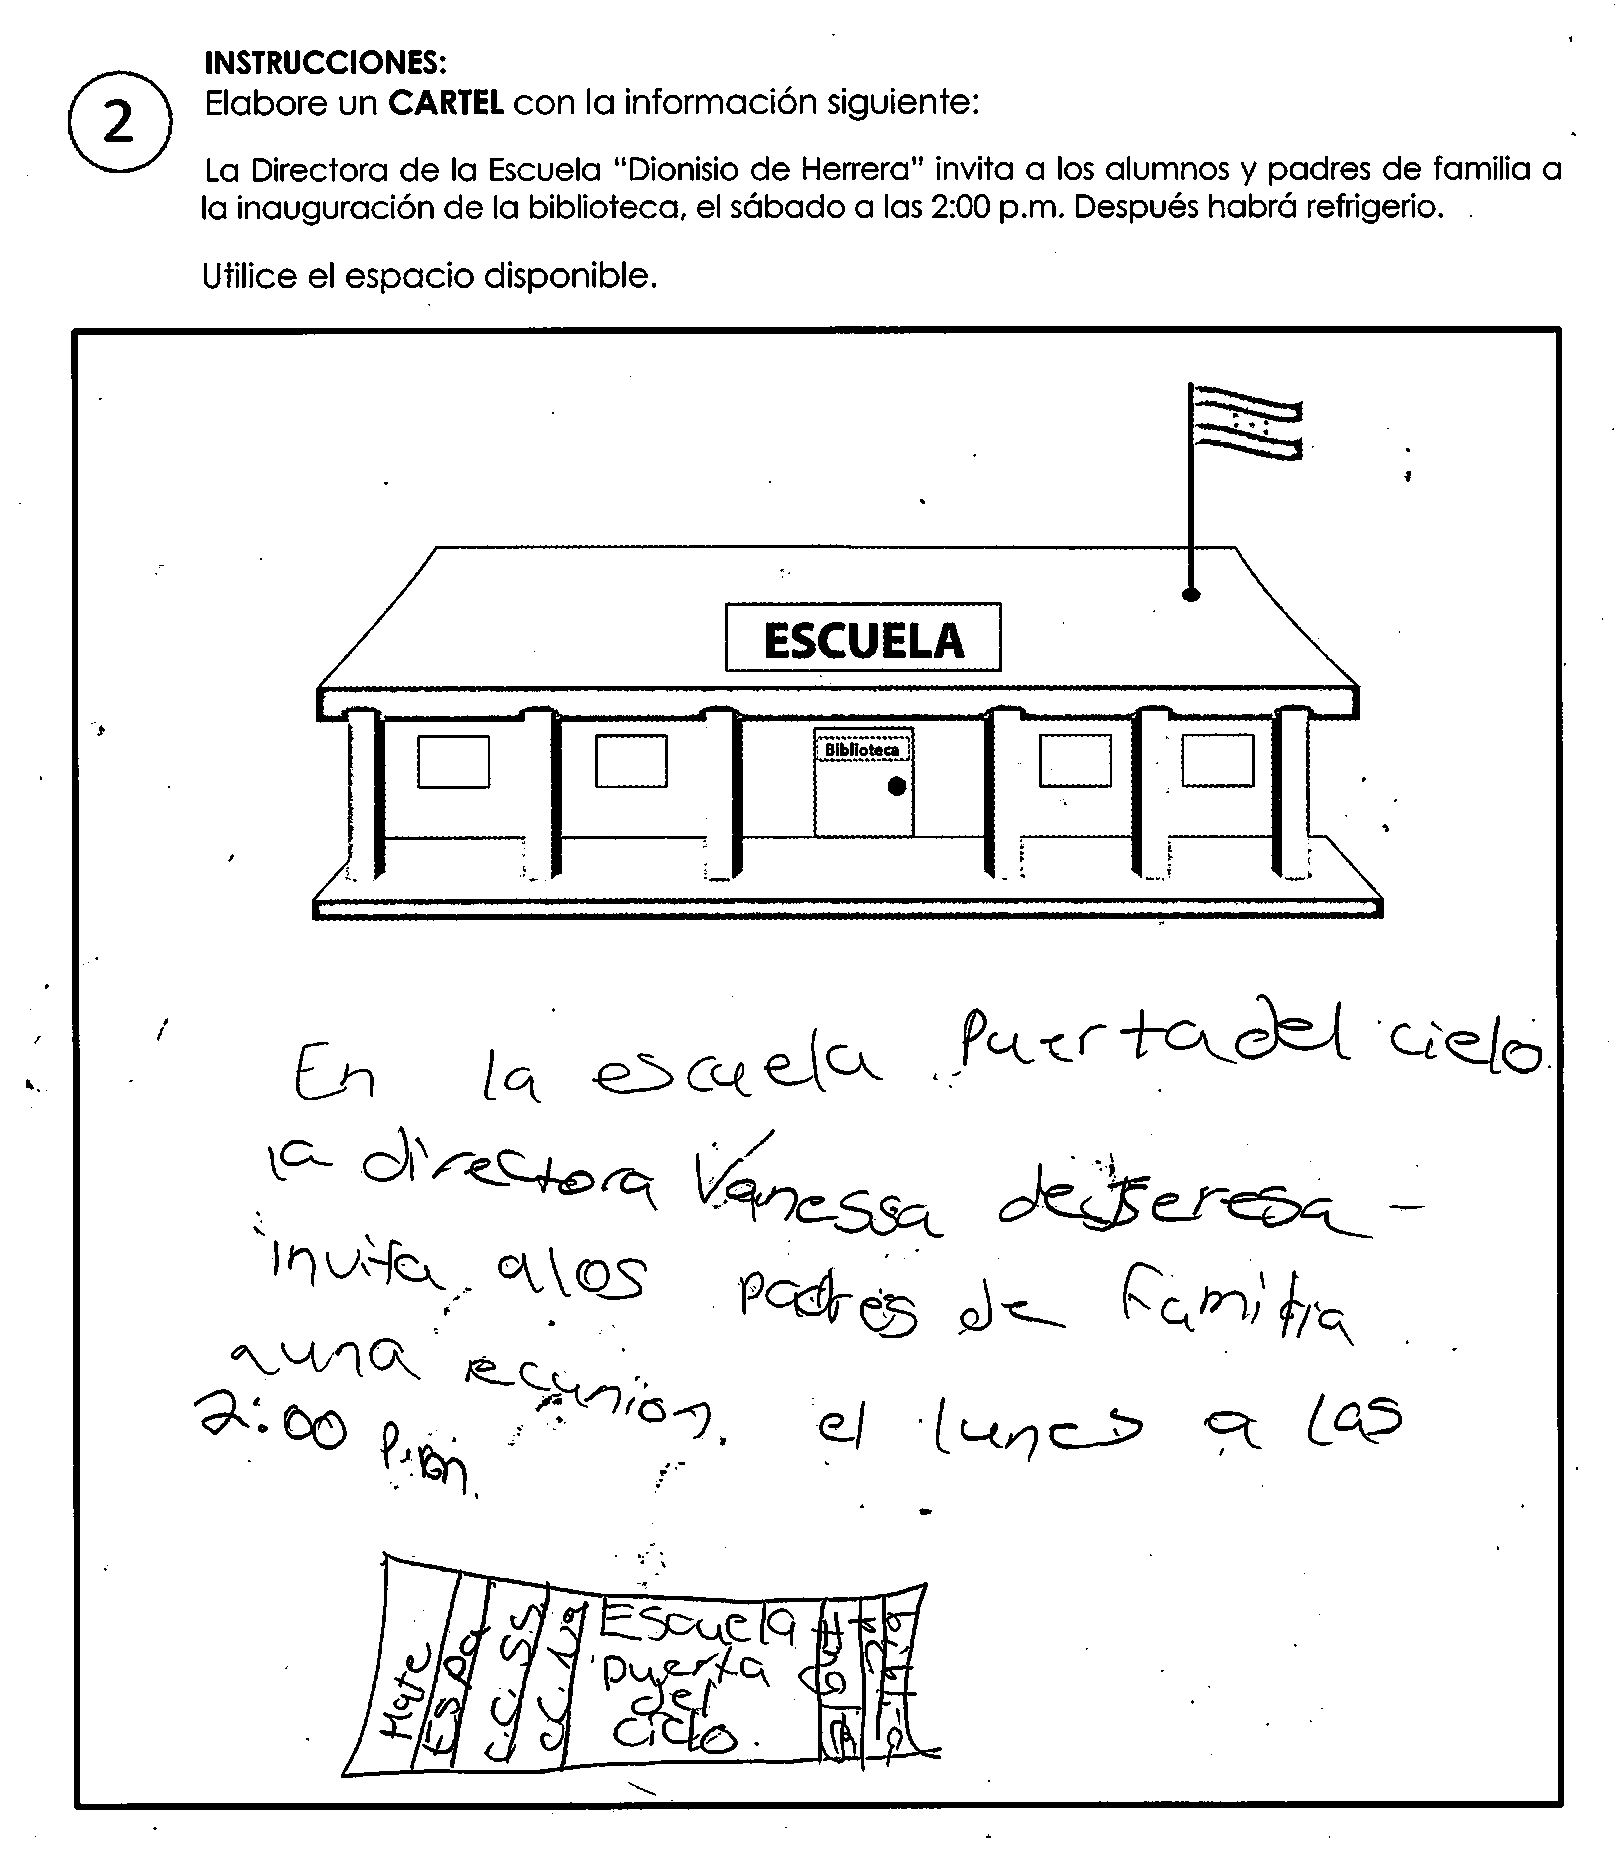 INSTRUCCIONES:
2
Elabore un CARTEL con la información siguiente:
La Directora de la Escuela "Dionisio de Herrera" invita a los alumnos y padres de familia a
la inauguración de la biblioteca, el sábado a las 2:00 p.m. Después habrá refrigerio.
Utilice el espacio disponible.
ESCUELA
Biblioteca
En la escuela Puerta del cielo
la directora Vanessa
invita alos padres de familia
auna reunion. el lunes a las
2:00 P.m.
Mate
Espa
CC. SS
CC. NN
Escuela
puerta
del
Cielo.